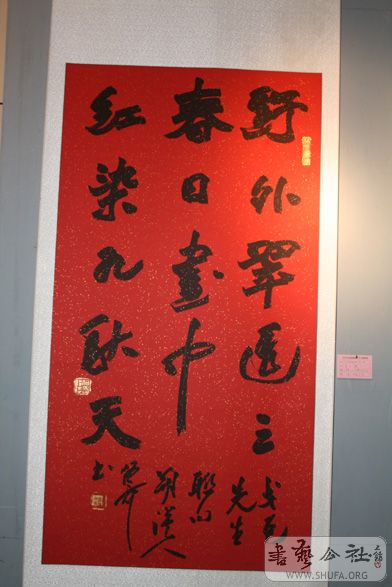 野外翠還三
春日畫中
红染九秋天
先生
聯句
朔漠人
书
書藝公社
WWW.SHUFA.ORG